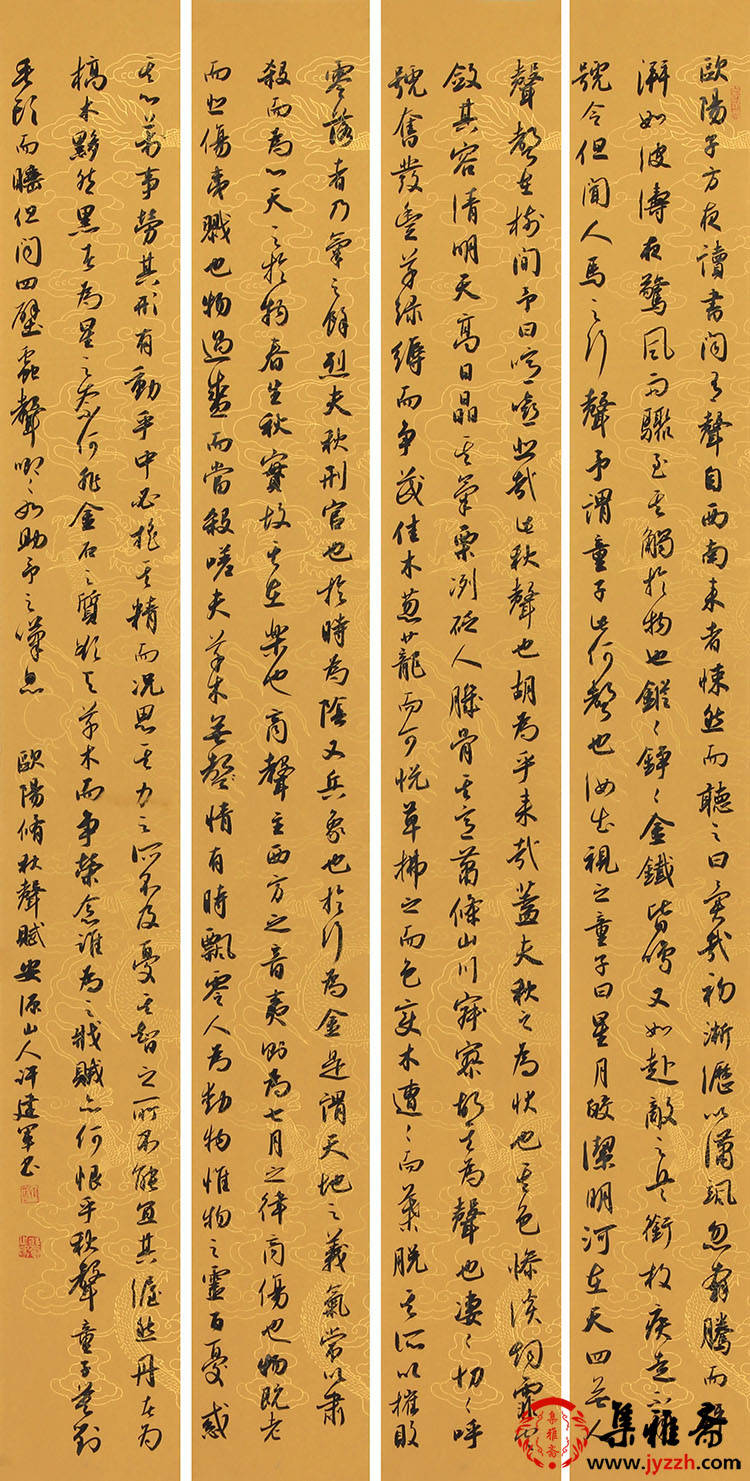 歐陽子方夜讀書聞有聲自西南來者悚然而聽之曰異哉初淅瀝以瀟颯忽奔騰而砰
湃如波濤夜驚風雨驟至其觸於物也鏦々錚々金鐵皆鳴又如赴敵之兵銜枚疾走不
號令但聞人馬之行聲予謂童子此何聲也汝出視之童子曰星月皎潔明河在天四無人
聲聲在樹間予曰噫嘻悲哉此秋聲也胡為乎來哉蓋夫秋之為狀也其色慘淡煙霏
斂其容清明天高日晶其氣栗冽砭人肌骨其意蕭條山川寂寥故其為聲也淒々切々呼
號奮發豐草綠縟而爭茂佳木蔥蘢而可悅草拂之而色變木遭之而葉脫其所以摧敗
零落者乃氣之餘烈夫秋刑官也於時為陰又兵象也於行為金是謂天地之義氣常以肅
殺而為心天之於物春生秋實故其在樂也商聲主西方之音夷則為七月之律商傷也物既老
而悲傷夷戮也物過盛而當殺嗟夫草木無聲情有時飄零人為動物惟物之靈百憂感
其心萬事勞其形有動乎中必搖其精而況思其力之所不及憂其智之所不能宜其渥然丹者為
槁木黟然黑者為星之奈何非金石之質欲與草木而爭榮念誰為之戕賊亦何恨乎秋聲童子莫對
垂頭而睡但聞四壁蟲聲唧々如助予之嘆息 歐陽脩秋聲賦安源山人許建軍書
集雅斋
集雅斋
www.jyzzh.com